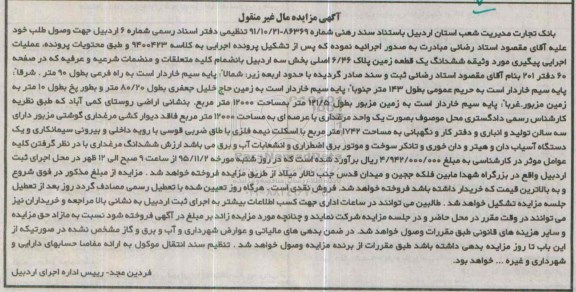 آگهی مزایده مال غیر منقول
بانک تجارت مدیریت شعب استان اردبیل باستناد سند رهنی شماره ۸۶۳۶۹-۹۱/۱۰/۲۱ تنظیمی دفتر اسناد رسمی شماره ۶ اردبیل جهت وصول طلب خود
علیه آقای مقصود استاد رضائی مبادرت به صدور اجرائیه نموده که پس از تشکیل پرونده اجرایی به کلاسه ۹۴۰۰۴۲۳ و طبق محتویات پرونده، عملیات
اجرایی پیگیری مورد وثیقه ششدانگ یک قطعه زمین پلاک ۶/۴۶ اصلی بخش سه اردبیل بانضمام کلیه متعلقات و منضمات شرعیه و عرفیه که در صفحه
۶۰ دفتر ۲۰۱ بنام آقای مقصود استاد رضائی ثبت و سند صادر گردیده با حدود اربعه زیر: شمالا: پایه سیم خاردار است به راه فرعی بطول ۹۰ متر. شرقا:
پایه سیم خاردار است به حریم عمومی بطول ۱۴۳ متر جنوبا: پایه سیم خاردار است به زمین حاج خلیل جعفری بطول ۸۰/۲۰ متر و بطور پخ بطول ۱۰ متر به
زمین مزبور.غربا: پایه سیم خاردار است به زمین مزبور بطول ۱۳۱/۵ متر بمساحت ۱۲۰۰۰ متر مربع. بنشانی اراضی روستای کمی آباد که طبق نظریه
کارشناس رسمی دادگستری محل موصوف بصورت یک واحد مرغداری با عرصه ای به مساحت ۱۲۰۰۰ متر مربع فاقد دیوار کشی مرغداری گوشتی مزبور دارای
سه سالن تولید و انباری و دفتر کار و نگهبانی به مساحت ۱۷۴۲ متر مربع با اسکلت نیمه فلزی با طاق ضربی قوسی با رویه داخلی و بیرونی سیمانکاری و یک
دستگاه آسیاب دان و هیتر و دان خوری و تانکر سوخت و موتور برق اضطراری و انشعابات آب و برق می باشد ارزش ششدانگ مرغداری با در نظر گرفتن کلیه
عوامل موثر در کارشناسی به مبلغ ۴/۹۴۲/۰۰۰/۰۰۰ ریال برآورد شده است که در روز شنبه مورخه ۹۵/۱۱/۲ از ساعت ۹ صبح الی ۱۲ ظهر در محل اجرای ثبت
اردبیل واقع در بزرگراه شهدا مابین فلکه ججین و میدان قدس جنب تالار میلاد از طریق مزایده فروخته خواهد شد. مزایده از مبلغ مذکور در فوق شروع
و به بالاترین قیمت که خریدار داشته باشد فروخته خواهد شد. فروش نقدی است. هرگاه روز تعیین شده با تعطیل رسمی مصادف گردد روز بعد از تعطیل
جلسه مزایده تشکیل خواهد شد. طالبین می توانند در ساعات اداری جهت کسب اطلاعات بیشتر به اجرای ثبت اردبیل به نشانی بالا مراجعه و خریداران نیز
می توانند در وقت مقرر در محل حاضر و در جلسه مزایده شرکت نمایند و چنانچه مورد مزایده زائد بر مبلغ در آگهی فروخته شود نسبت به مازاد حق مزایده
و سایر هزینه های قانونی طبق مقررات وصول خواهد شد. در ضمن بدهی های مالیاتی و عوارض شهرداری و آب و برق و گاز مشخص نشده در صورتیکه از
این باب تا روز مزایده بدهی داشته باشد طبق مقررات از برنده مزایده وصول خواهد شد. تنظیم سند انتقال موکول به ارائه مفاصا حسابهای دارایی و
شهرداری و غیره ... خواهد بود.
فردین مجد- رییس اداره اجرای اردبیل